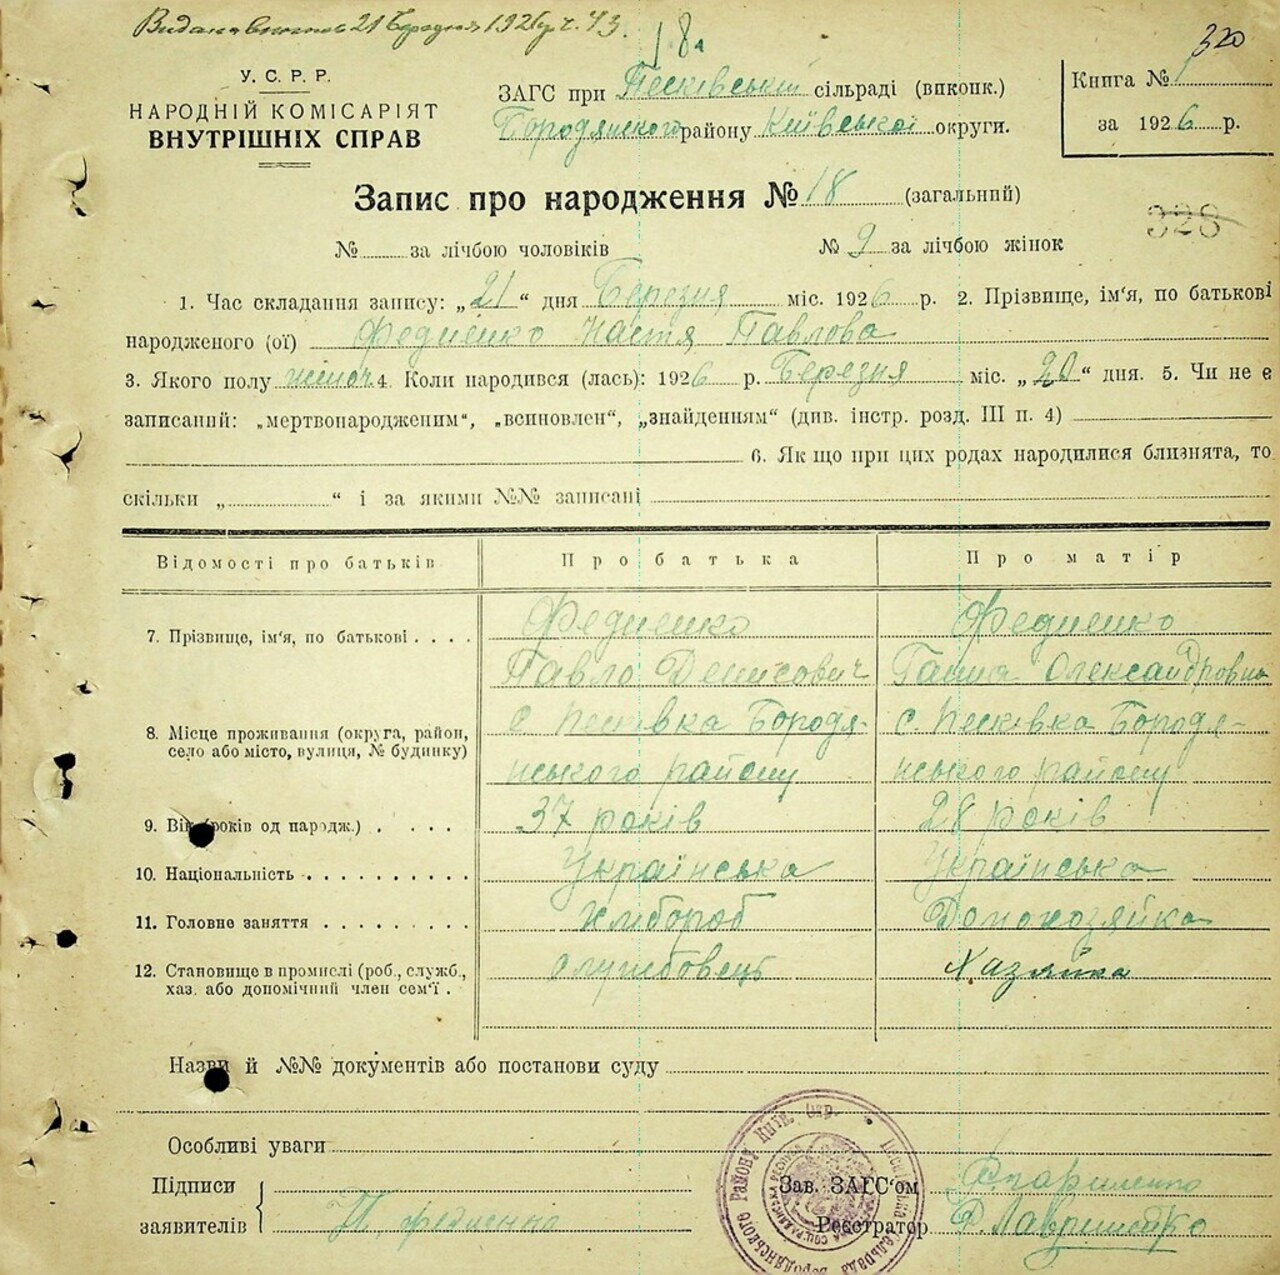 21 Березня 1926 р. ч. 43.
18
320
У. С. Р. Р.
НАРОДНІЙ КОМІСАРІЯТ
ВНУТРІШНІХ СПРАВ
ЗАГС при Песківській сільраді (виконк.)
Бородянского району Київської округи.
Книга № 1
за 1926 р.
Запис про народження № 18 (загальний)
328
№ за лічбою чоловіків № 9 за лічбою жінок
1. Час складання запису: „21“ дня Березня міс. 1926 р. 2. Прізвище, ім'я, по батькові
народженого (ої) Федченко Настя Павлова
3. Якого полу жіноч. 4. Коли народився (лась): 1926 р. Березня міс. „20“ дня. 5. Чи не є
записаний: „мертвонародженим“, „всиновлен“, „знайденням“ (див. інстр. розд. III п. 4)
6. Як що при цих родах народилися близнята, то
скільки „ “ і за якими №№ записані
Відомості про батьків Про батька Про матір
7. Прізвище, ім'я, по батькові . . . . Федченко Федченко
Павло Денисович Ганна Олександровна
8. Місце проживання (округа, район, с Песківка Бородя- с. Песківка Бородя-
село або місто, вулиця, № будинку) нського району нського району
9. Вік (років од народж.) . . . . 37 років 28 років
10. Національність . . . . . . . . . . Українська Українська
11. Головне заняття . . . . . . . . . Хлибороб Домохозяйка
12. Становище в промислі (роб., служб., службовець Хазяйка
хаз. або допомічний член сем'ї .
Назви й №№ документів або постанови суду
Особливі уваги
Підписи
заявителів П. Федченко
Зав. ЗАГС'ом
Реєстратор